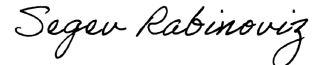 Segev Rabinoviz